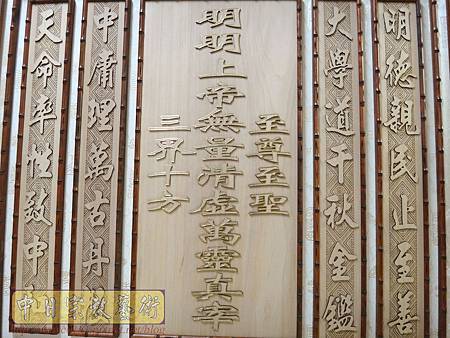 明德親民止至善
大學道千秋金鑑
明明上帝無量清虛
至尊至聖
三界十方
萬靈真宰
中庸理萬古丹
天命率性致中
中日宗教藝術